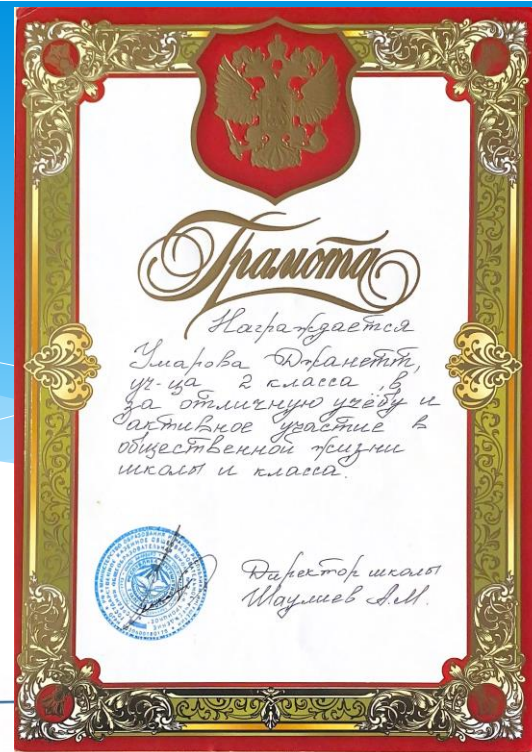 Грамота
Награждается
Умарова Джанетт,
уч-ца 2 класса „В"
за отличную учёбу и
активное участие в
общественной жизни
школы и класса.
Директор школы
Шаулиев А.М.